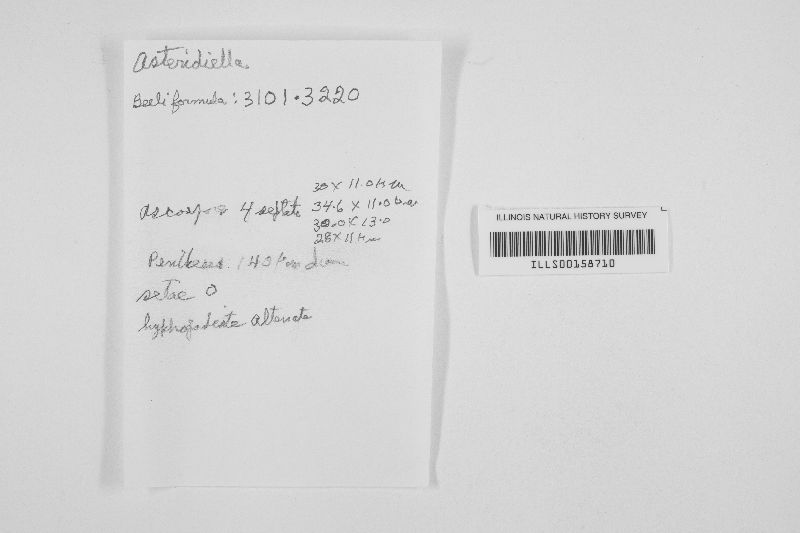 Asteridiella
Beeli formula: 3101.3220
30 X 11.0 µm
ascospore 4 septate 34.6 X 11.0 µm
30.0 X 13.0
28 X 11 µm
Perithecia 140 µm diam
setae 0
hyphopodiate alternate
ILLINOIS NATURAL HISTORY SURVEY
ILLS00158710